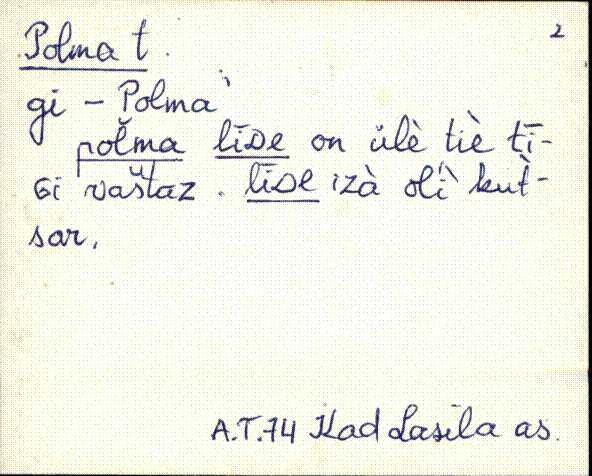 Polma t.
2
gi – Polma'
polma līse on ülè tiè tī-
Gi vaštaz. līse izà olì kut-
sar.
A.T.74 Kad Lasila as.